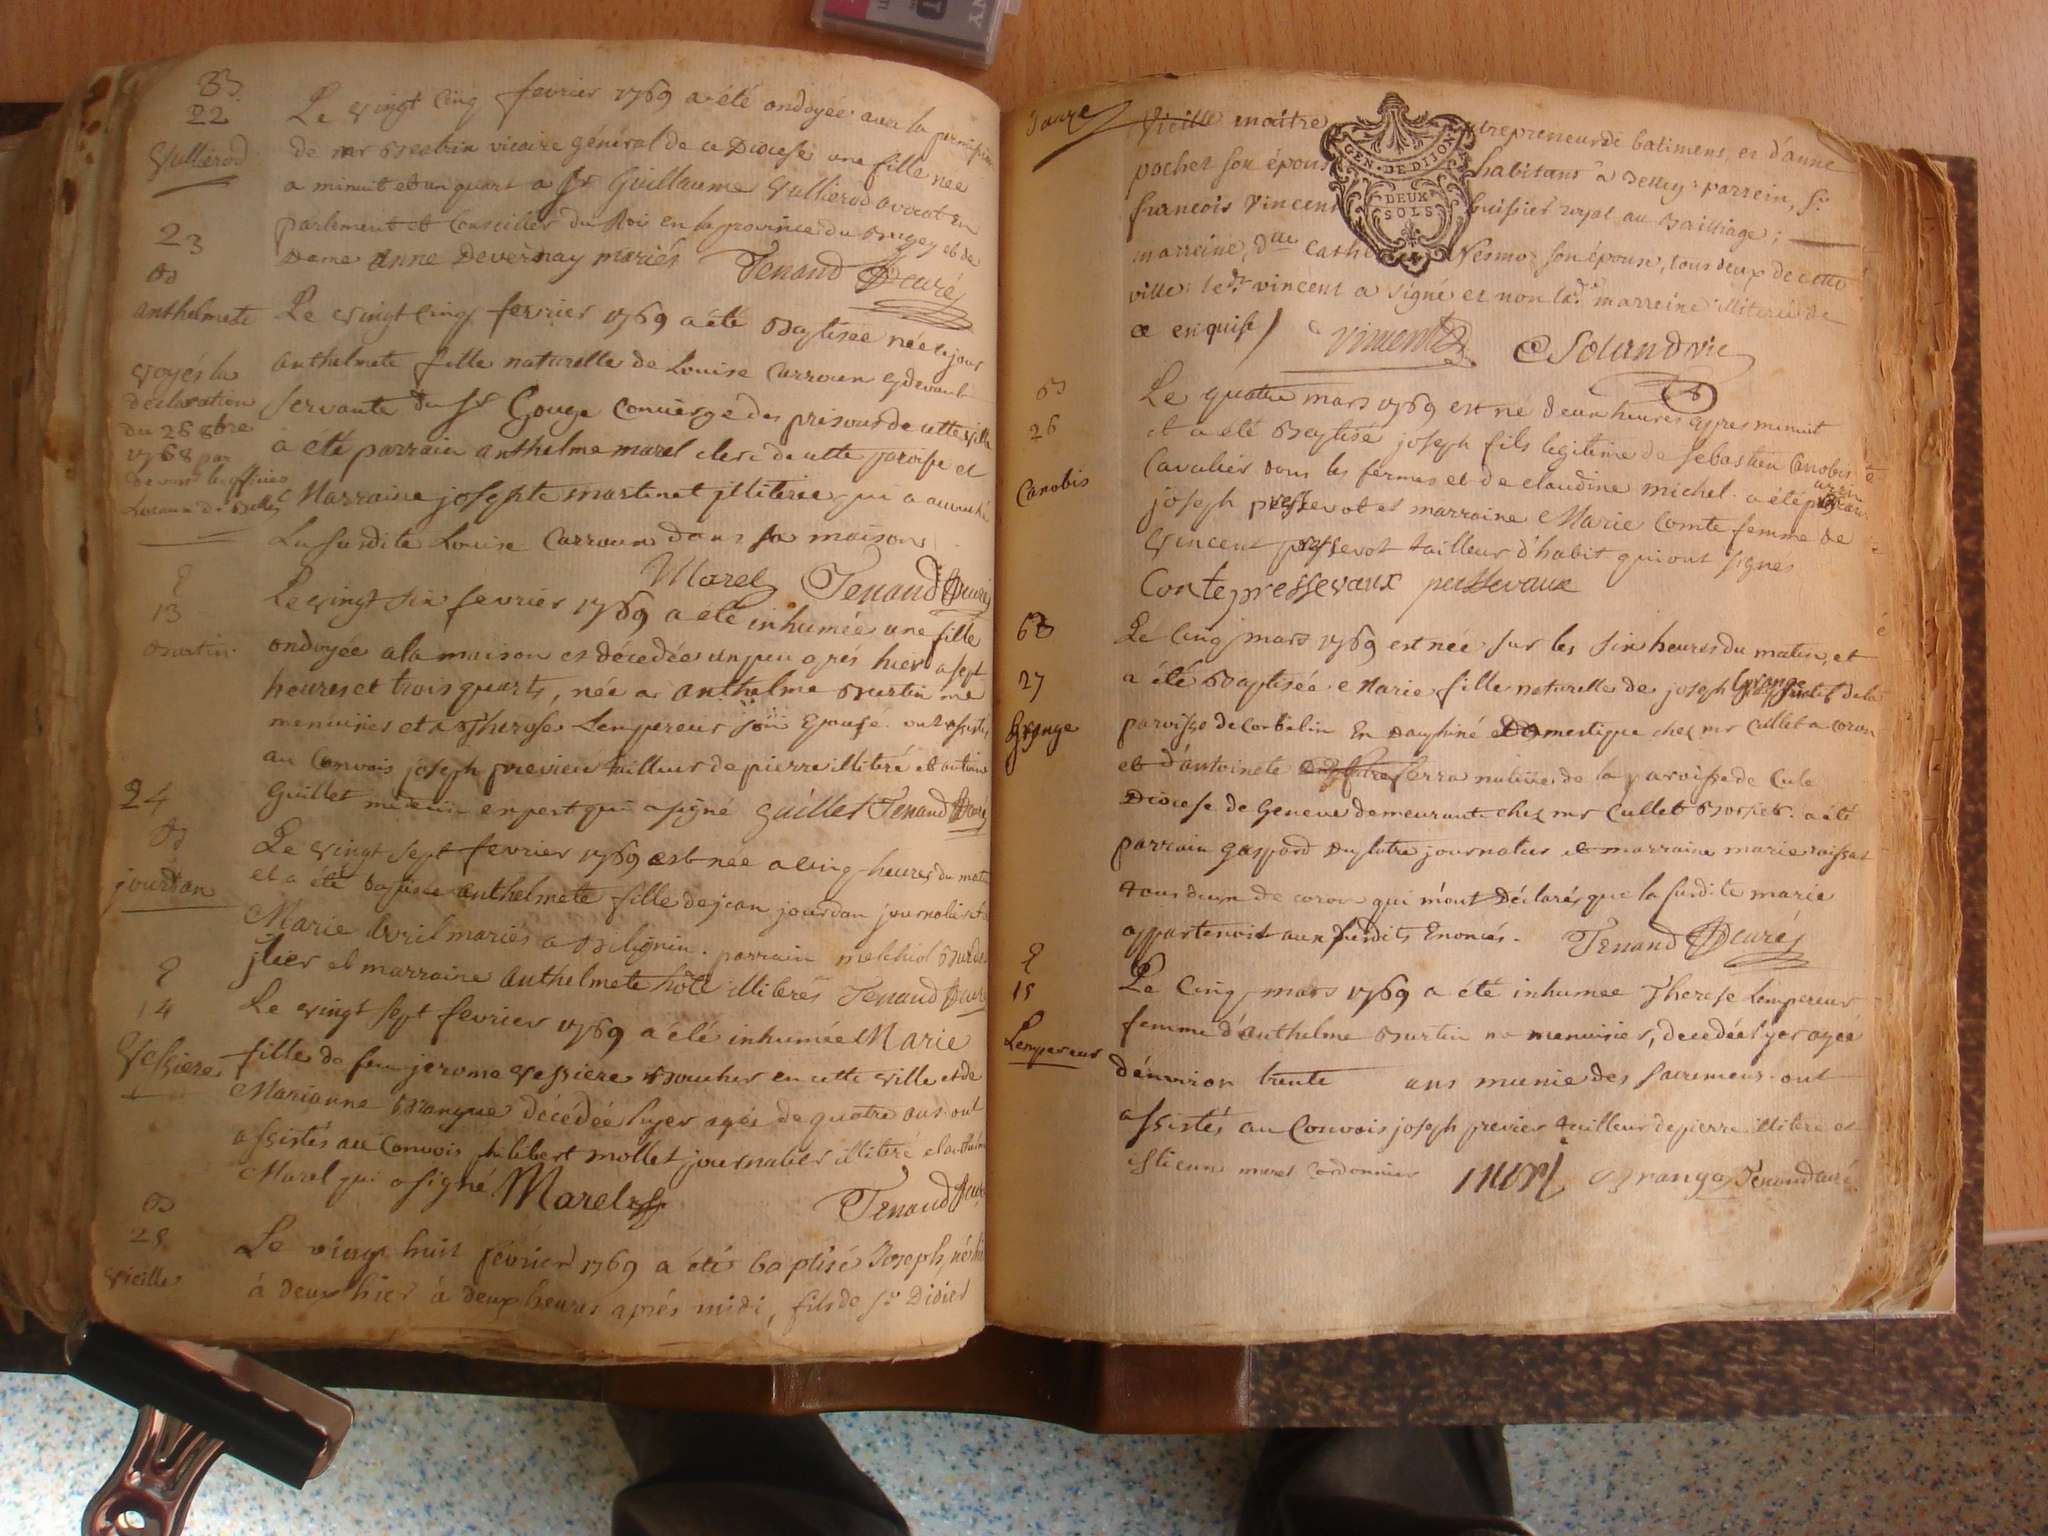 B
22
Vullierod
Le vingt cinq fevrier 1769 a été ondoyée avec la permission
de mr vicaire général de ce Diocese une fille née
a minuit et un quart a Sr Guillaume Vullierod avocat en
parlement et Conseiller du Roi en la province du Bugey et de
Dame Anne Devernay mariés Tenand Curé
23
B
anthelmete
Le vingt cinq fevrier 1769 a été Baptisee née le jour
anthelmete fille naturelle de Louise Carroun cydevant
servante du Sr Gouge Concierge des prisons de cette ville
a été parrain anthelme marel clerc de cette paroisse et
Marraine josephte martinet illiterée qui a
La susdite Louise Carroun dans sa maison
voyés la
declaration
du 26 8bre
1768 par
devant les officiers
Locaux de Belley
Marel Tenand Curé
13
Burtin
Le vingt six fevrier 1769 a été inhumée une fille
ondoyée a la maison et décedée un peu aprés hier a sept
heures et trois quarts, née a anthelme Burtin me
menuisier et a Therese Lempereur son Epouse. ont assistés
au Convois joseph previer tailleur de pierre illiteré et antoine
Guillet médecin expert qui a signé Guillet Tenand Curé
24
B
jourdan
Le vingt sept fevrier 1769 est née a cinq heures du matin
et a été baptisée anthelmette fille de jean jourdan journalier et
Marie Avril mariés a Bilignin. parrain melchiol
et marraine anthelmete hote illiterés Tenand Curé
14
Vessiere
Le vingt sept fevrier 1769 a été inhumée Marie
fille de feu jerome Vessiere Boucher en cette ville et de
Marianne Brangue décédée hyer agée de quatre ans. ont
assistés au Convois philibert mollet journalier illiteré et anthelme
Marel qui a signé Marel Tenand Curé
B
25
Vieille
Le vingt huit février 1769 a été baptisé Joseph, né
à deux hier à deux heures aprés midi, fils de Sr Didier
Vieille maitre entrepreneur de batimens, et d'anne
pochet son épouse habitans à Belley: parrein, Sr
francois Vincent huissier royal au Bailliage;
marreine, dlle Cathe Vesmoz son épouse, tous deux de cette
ville: led. Sr vincent a signé et non lad. marreine illiterée de
ce enquise / Vincent CSoland vic
GEN. DE DIJON
DEUX
SOLS
B
26
Canobis
Le quatre mars 1769 est né deux heures apres minuit
et a été Baptisé joseph fils legitime de sebastien Canobis
Cavalier dans les fermes et de claudine michel. a été parrain
joseph pressevot et marraine Marie Comte femme de
Vincent pressevot tailleur d'habit qui ont signés
Conte pressevaux pressevaux
B
27
Grange
Le Cinq mars 1769 est née sur les six heures du matin, et
a été Baptisée Marie fille naturelle de joseph Grange natif de la
paroisse de Corbelin En Dauphiné Domestique chez mr Cullet a coron
et d'antoinete ferra native de la paroisse de Cule
Diocese de Geneve demeurante chez mr Cullet. a été
parrain gaspard Dufutre journalier et marraine marie raissat
tous deux de coron qui m'ont Déclarés que la susdite marie
appartenoit aux susdits Enoncés. Tenand Curé
15
Lempereur
Le Cinq mars 1769 a été inhumee Therese Lempereur
femme d'anthelme Burtin me menuisier, decedée hyer agée
d'environ trente ans munie des sacremens. ont
assistés au Convois joseph previer tailleur de pierre illiteré et
Etienne morel Cordonnier morel Brange Tenand curé